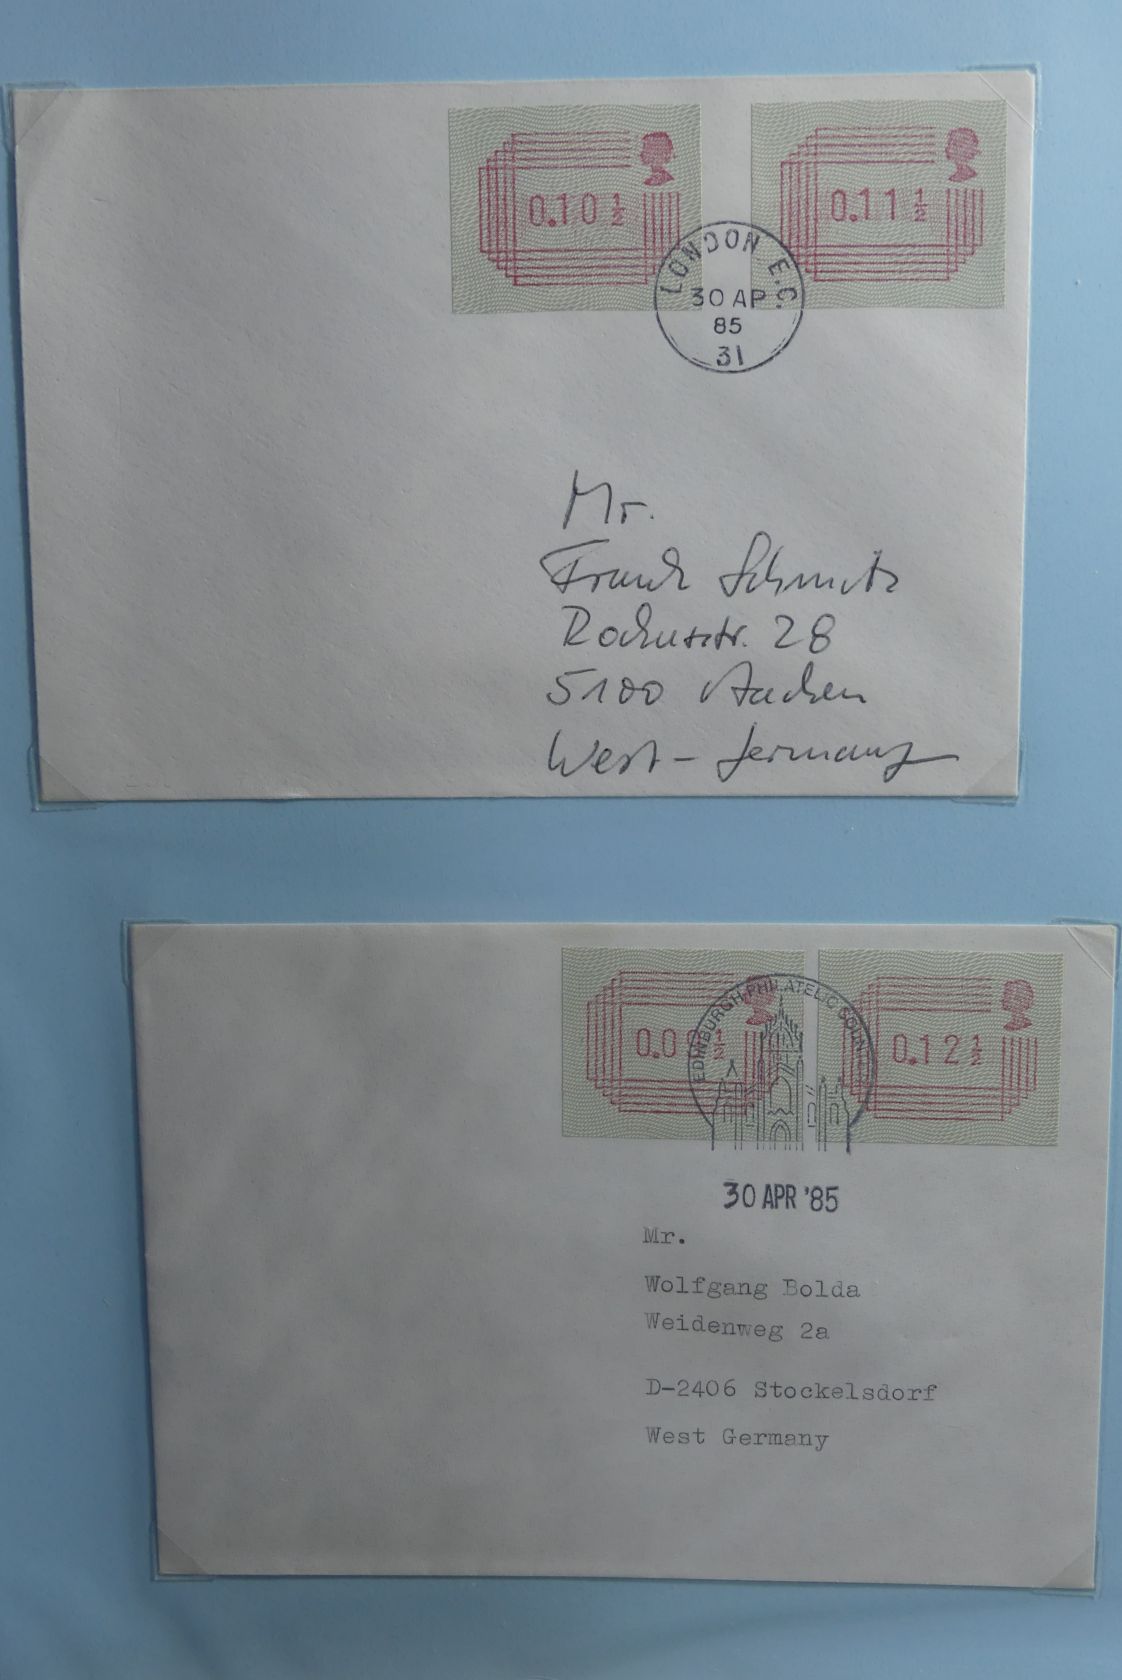 0.10½
0.11½
LONDON E.C.
30 AP
85
31
Mr.
Frank Schmitz
Rochusstr. 28
5100 Aachen
West-Germany
0.12½
EDINBURGH PHILATELIC COUNTER
30 APR '85
Mr.
Wolfgang Bolda
Weidenweg 2a
D-2406 Stockelsdorf
West Germany